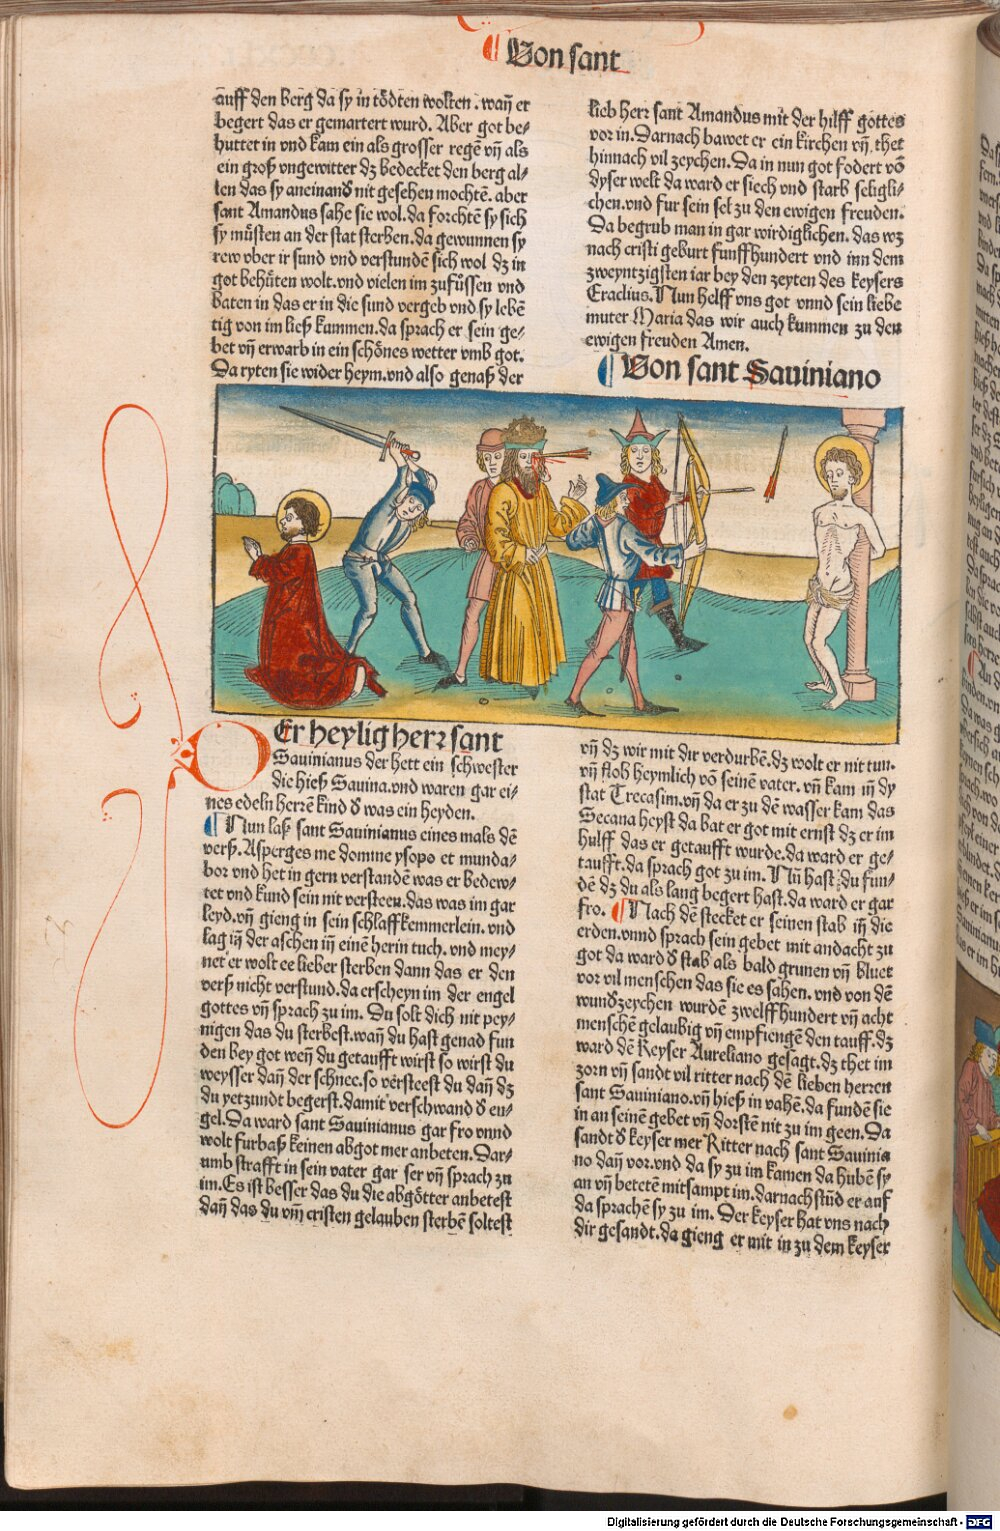 Von sant
auff den berg da sy in tödten wolten. wañ er
begert das er gemartert wurd. Aber got be⸗
huttet in vnd kam ein als grosser regē vñ als
ein groß vngewitter dz bedecket den berg al⸗
len das sy aneinand nit gesehen mochtē. aber
sant Amandus sahe sie wol. da forchtē sy sich
sy müsten an der stat sterben. da gewunnen sy
rew vber ir sund vnd verstundē sich wol dz in
got behüten wolt. vnd vielen im zufüssen vnd
baten in das er in die sund vergeb vnd sy lebē
tig von im ließ kummen. da sprach er sein ge⸗
bet vñ erwarb in ein schönes wetter vmb got.
Da ryten sie wider heym. vnd also genaß der
lieb herr sant Amandus mit der hilff gottes
vor in. Darnach bawet er ein kirchen vñ thet
hinnach vil zeychen. Da in nun got fodert vō
dyser welt da ward er siech vnd starb seligli⸗
chen. vnd fur sein sel zu den ewigen freuden.
Da begrub man in gar wirdiglichen. das wz
nach cristi geburt funffhundert vnd inn dem
zweyntzigsten iar bey den zeyten des keysers
Eraclius. Nun helff vns got vnnd sein liebe
muter Maria das wir auch kummen zu den
ewigen freuden Amen.
Von sant Sauiniano
DEr heylig herr sant
Sauinianus der hett ein schwester
die hieß Sauina. vnd waren gar ei⸗
nes edeln herrē kind d was ein heyden.
Nun laß sant Sauinianus eines mals dē
verß. Asperges me domine ysopo et munda⸗
bor vnd het in gern verstandē was er bedew⸗
tet vnd kund sein nit versteen. das was im gar
leyd. vñ gieng in sein schlaffkemmerlein. vnd
lag iñ der aschen iñ einē herin tuch. vnd mey⸗
net er wolt ee lieber sterben dann das er den
verß nicht verstund. da erscheyn im der engel
gottes vñ sprach zu im. Du solt dich nit pey⸗
nigen das du sterbest. wañ du hast genad fun
den bey got weñ du getaufft wirst so wirst du
weysser dañ der schnee. so versteest du dañ dz
du yetzundt begerst. damit verschwand d en⸗
gel. Da ward sant Sauinianus gar fro vnnd
wolt furbaß keinen abgot mer anbeten. Dar⸗
umb strafft in sein vater gar ser vñ sprach zu
im. Es ist besser das du die abgötter anbetest
dañ das du vm̄ cristen gelauben sterbē soltest
vñ dz wir mit dir verdurbē. dz wolt er nit tun.
vñ floh heymlich vō seinē vater. vñ kam iñ dy
stat Trecasim. vñ da er zu dē wasser kam das
Secana heyst da bat er got mit ernst dz er im
hulff das er getaufft wurde. da ward er ge⸗
taufft. da sprach got zu im. Nū hast du fun⸗
dē dz du als lang begert hast. da ward er gar
fro. Nach dē stecket er seinen stab iñ die
erden. vnnd sprach sein gebet mit andacht zu
got da ward d stab als bald grunen vñ bluet
vor vil menschen das sie es sahen. vnd von dē
wundzeychen wurdē zwelffhundert vñ acht
menschē gelaubig vñ empfiengē den tauff. dz
ward dē Keyser Aureliano gesagt. dz thet im
zorn vñ sandt vil ritter nach dē lieben herren
sant Sauiniano. vñ hieß in vahē. da fundē sie
in an seinē gebet vñ dorstē nit zu im geen. Da
sandt d keyser mer Ritter nach sant Sauinia
no dañ vor. vnd da sy zu im kamen da hubē sy
an vñ betetē mitsampt im. darnach stūd er auf
da sprachē sy zu im. Der keyser hat vns nach
dir gesandt. da gieng er mit in zu dem keyser
Digitalisierung gefördert durch die Deutsche Forschungsgemeinschaft - DFG